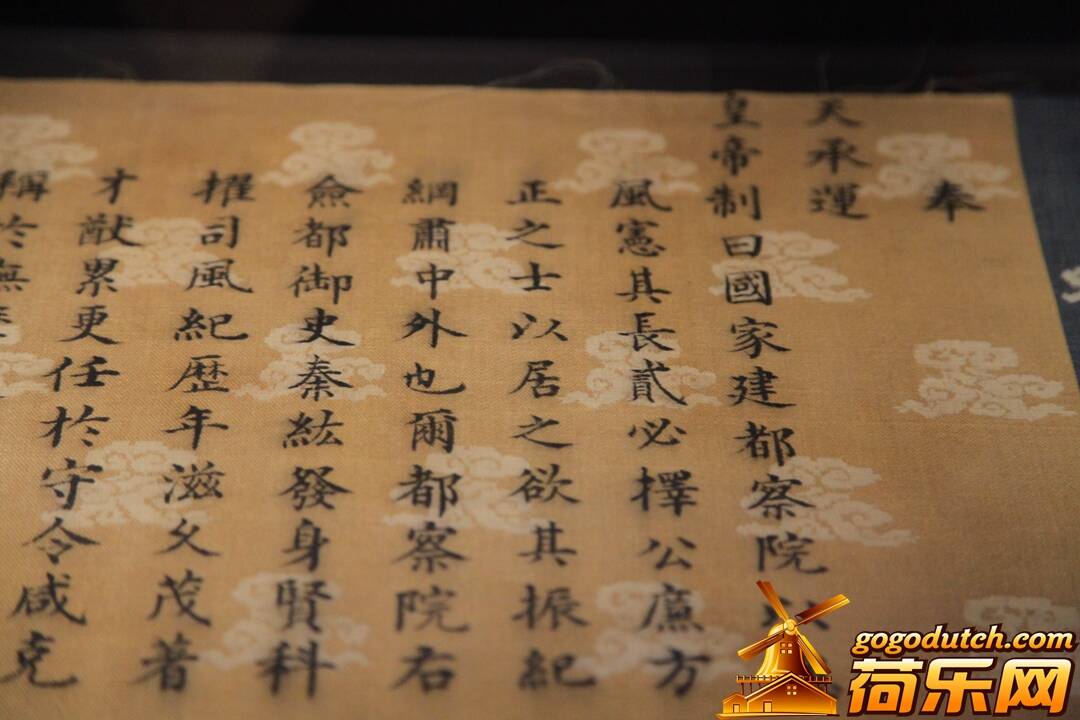 奉
天承運
皇帝制曰國家建都察院以
風憲其長貳必擇公廉方
正之士以居之欲其振紀
綱肅中外也爾都察院右
僉都御史秦紘發身賢科
擢司風紀歷年滋久茂著
才猷累更任於守令咸克
稱於無
gogodutch.com
荷乐网